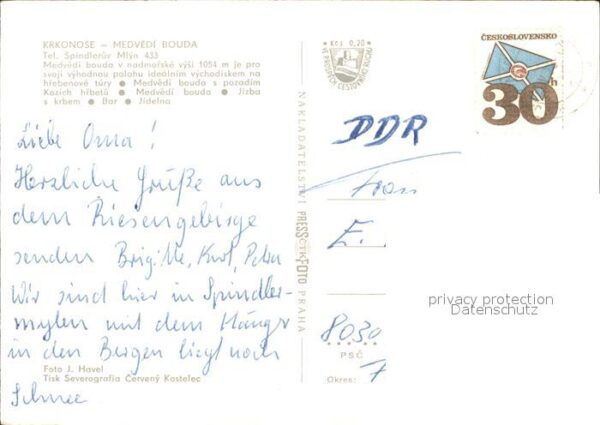 KRKONOŠE — MEDVĚDÍ BOUDA
Tel. Špindlerův Mlýn 433
Medvědí bouda v nadmořské výši 1054 m je pro
svoji výhodnou polohu ideálním východiskem na
hřebenové túry ● Medvědí bouda s pozadím
Kozích hřbetů ● Medvědí bouda ● Jizba
s krbem ● Bar ● Jídelna
Liebe Oma!
Herzliche Grüße aus
dem Riesengebirge
senden Brigitte, Kurt, Petra
Wir sind hier in Spindler-
mylen mit dem Hänger
in den Bergen liegt noch
Schnee
Foto J. Havel
Tisk Severografia Červený Kostelec
NAKLADATELSTVÍ PRESSFOTO PRAHA
ČTK
Kčs 0,20
VE PROSPĚCH CESTOVNÍHO RUCHU
ČESKOSLOVENSKO
30h
DDR
Frau
E.
8030
PSČ
Okres:
privacy protection
Datenschutz